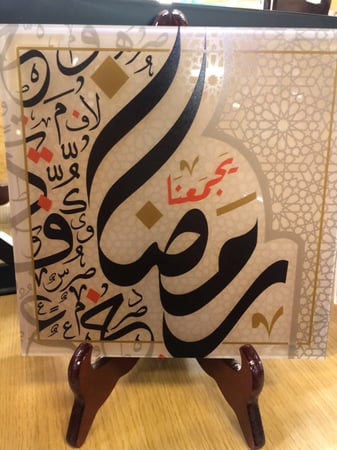 رمضان
يجمعنا